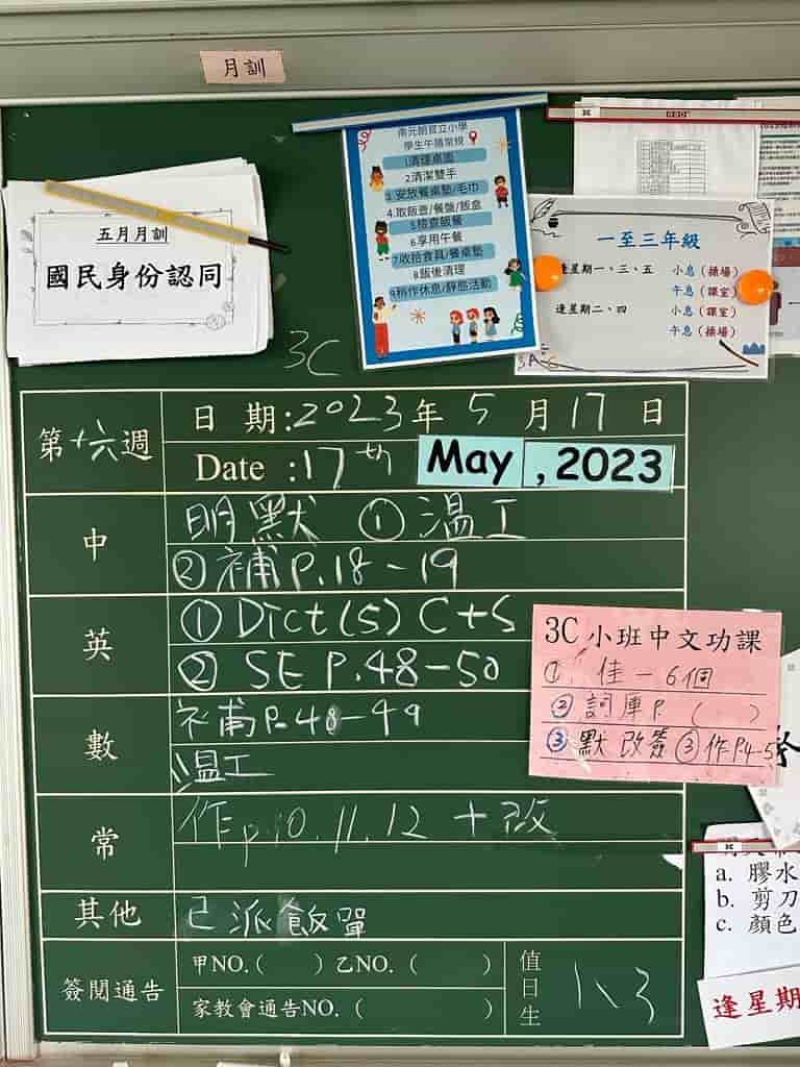 月訓
五月月訓
國民身份認同
南元朗官立小學
學生午膳常規
1.清理桌面
2.清潔雙手
3.安放餐桌墊/毛巾
4.取飯壺/餐盤/飯盒
5.檢查飯餐
6.享用午餐
7.收拾食具/餐桌墊
8.飯後清理
9.稍作休息/靜態活動
一至三年級
逢星期一、三、五 小息（操場）
午息（課室）
逢星期二、四 小息（課室）
午息（操場）
3C
第十六週
日 期:2023年 5 月17 日
Date :17th May ,2023
中
明默 ①溫工
②補P.18-19
英
①Dict(5) C+S
② SE P.48-50
數
補P.48-49
溫工
常
作p.10.11.12 +改
其他
已派飯單
簽閱通告
甲NO.( ) 乙NO. ( )
家教會通告NO. ( )
值日生
1、3
3C 小班中文功課
① 佳-6個
② 詞庫P. ( )
③ 默 改簽 ③作P.4-5
a. 膠水
b. 剪刀
c. 顏色
逢星期